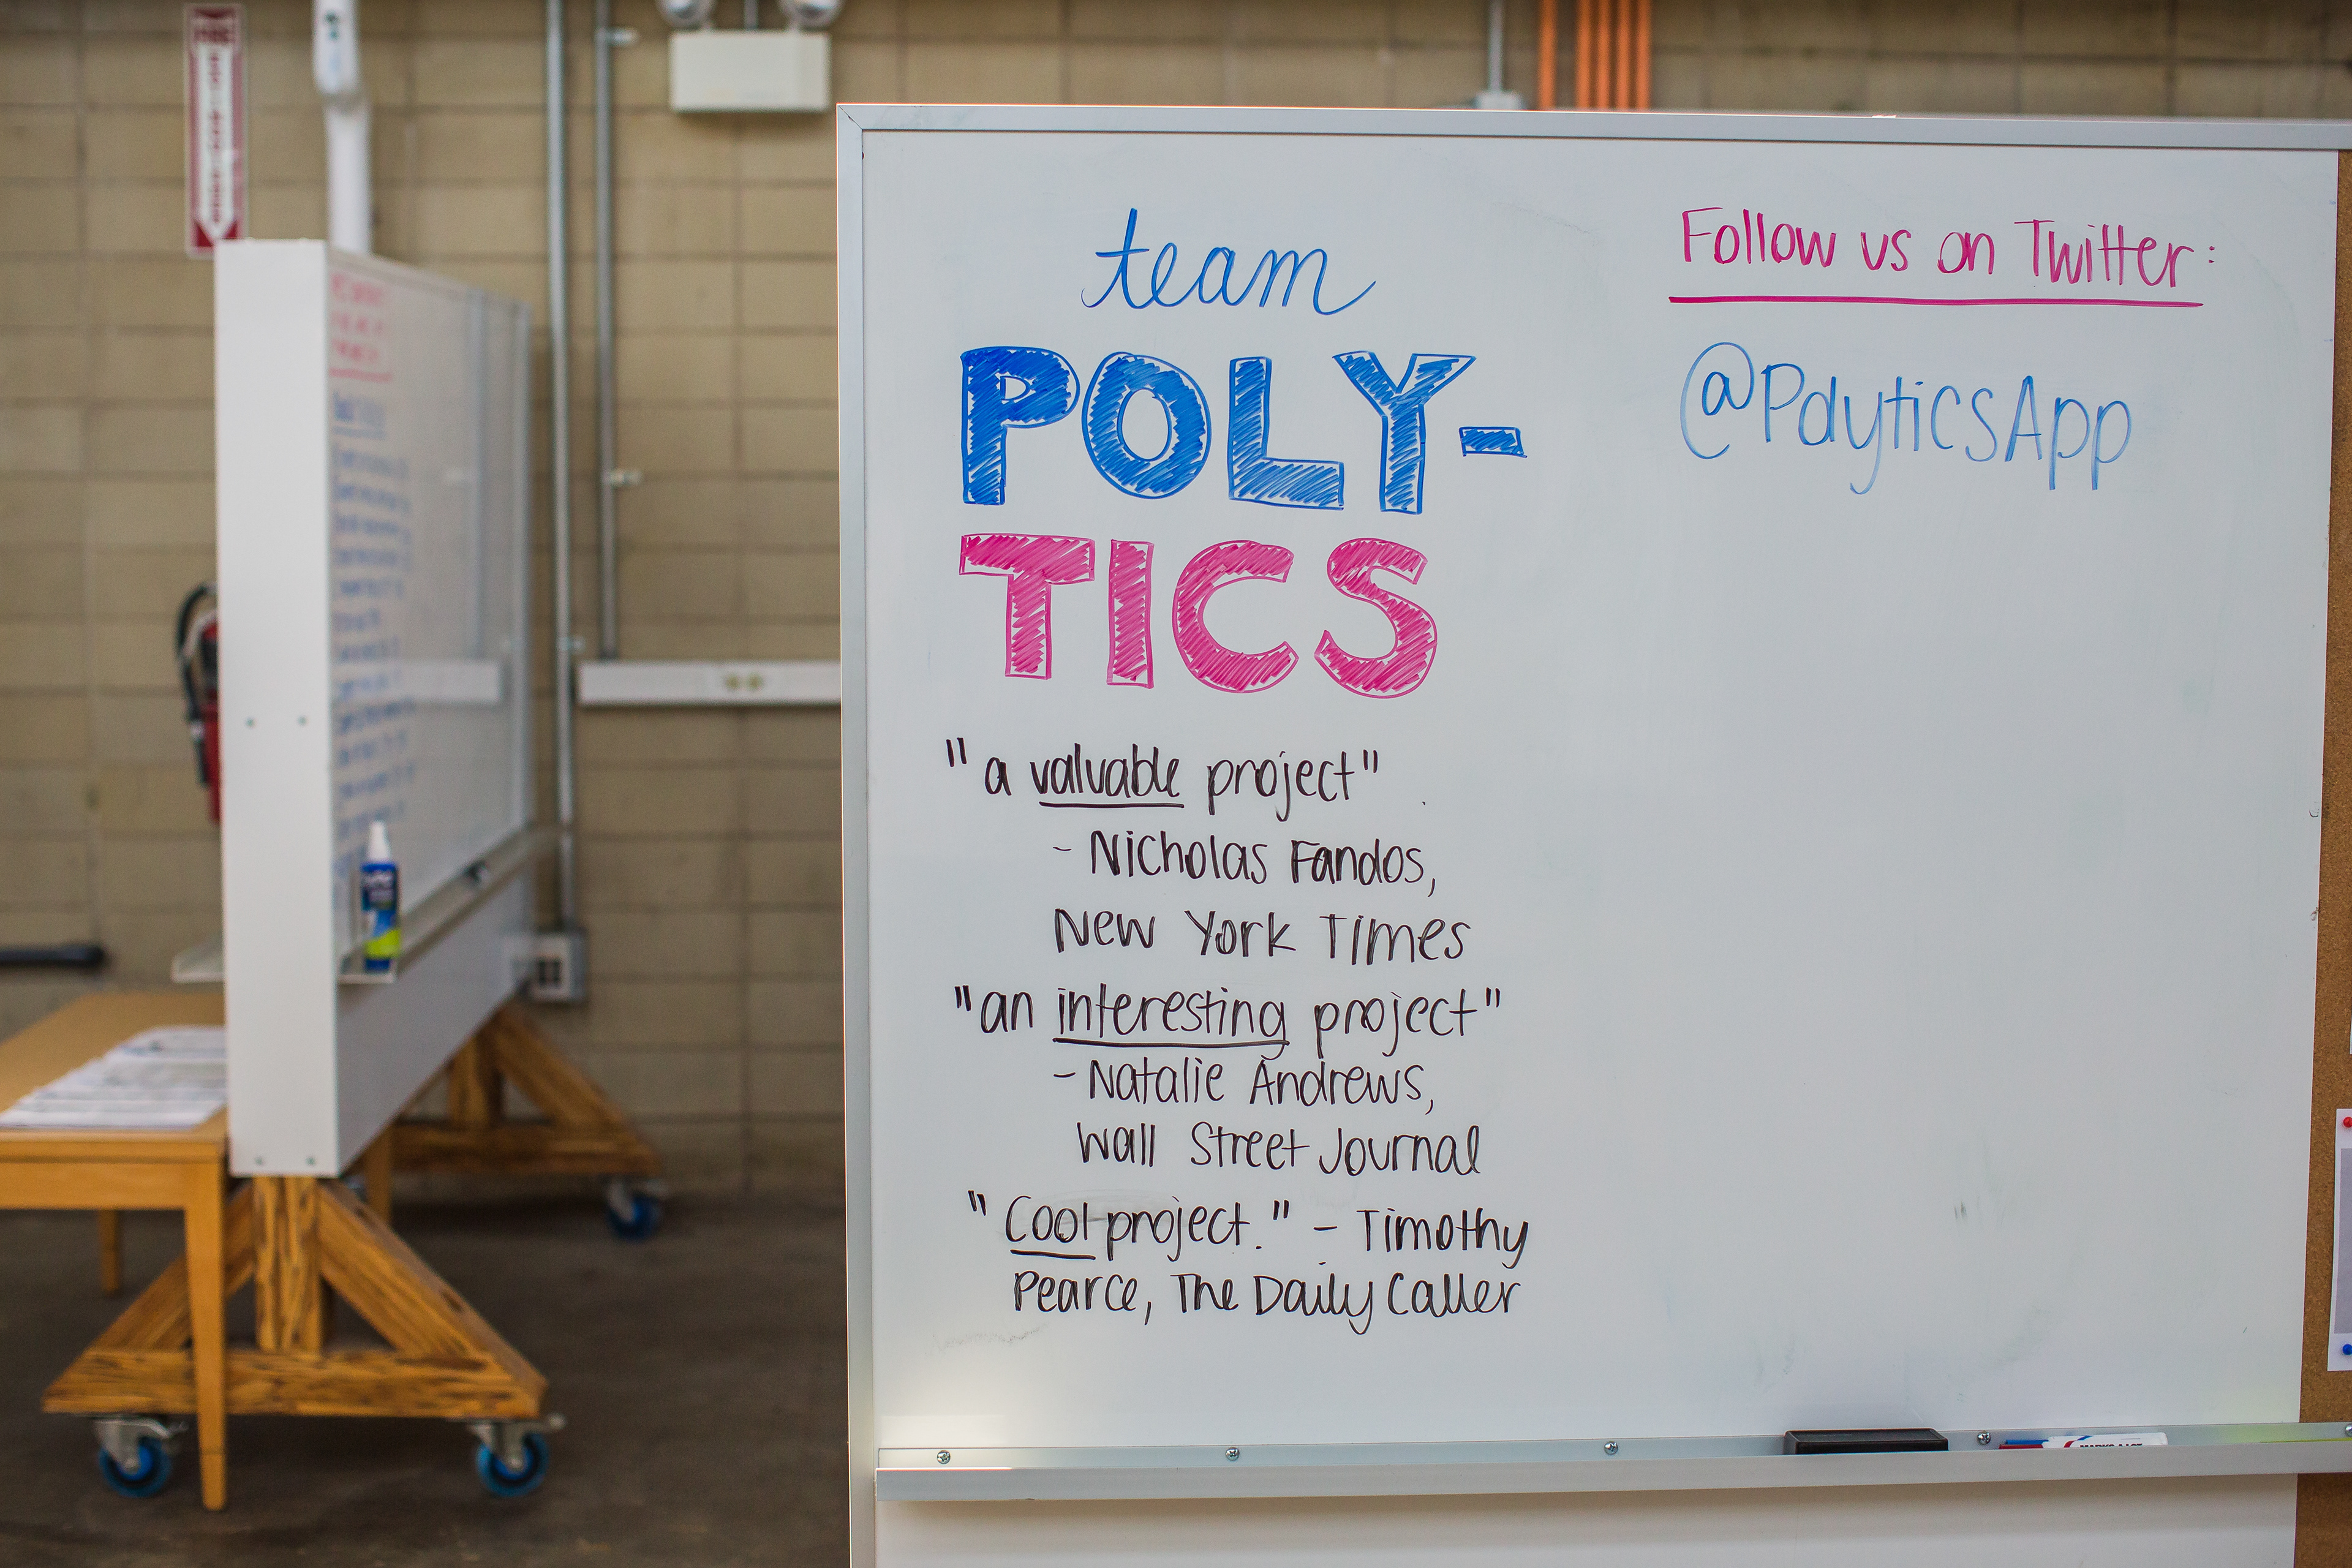 team
POLY-
TICS
"a valuable project"
- Nicholas Fandos,
New York Times
"an interesting project"
- Natalie Andrews,
Wall Street Journal
"Cool project." - Timothy
Pearce, The Daily Caller
Follow us on Twitter:
@PolyticsApp